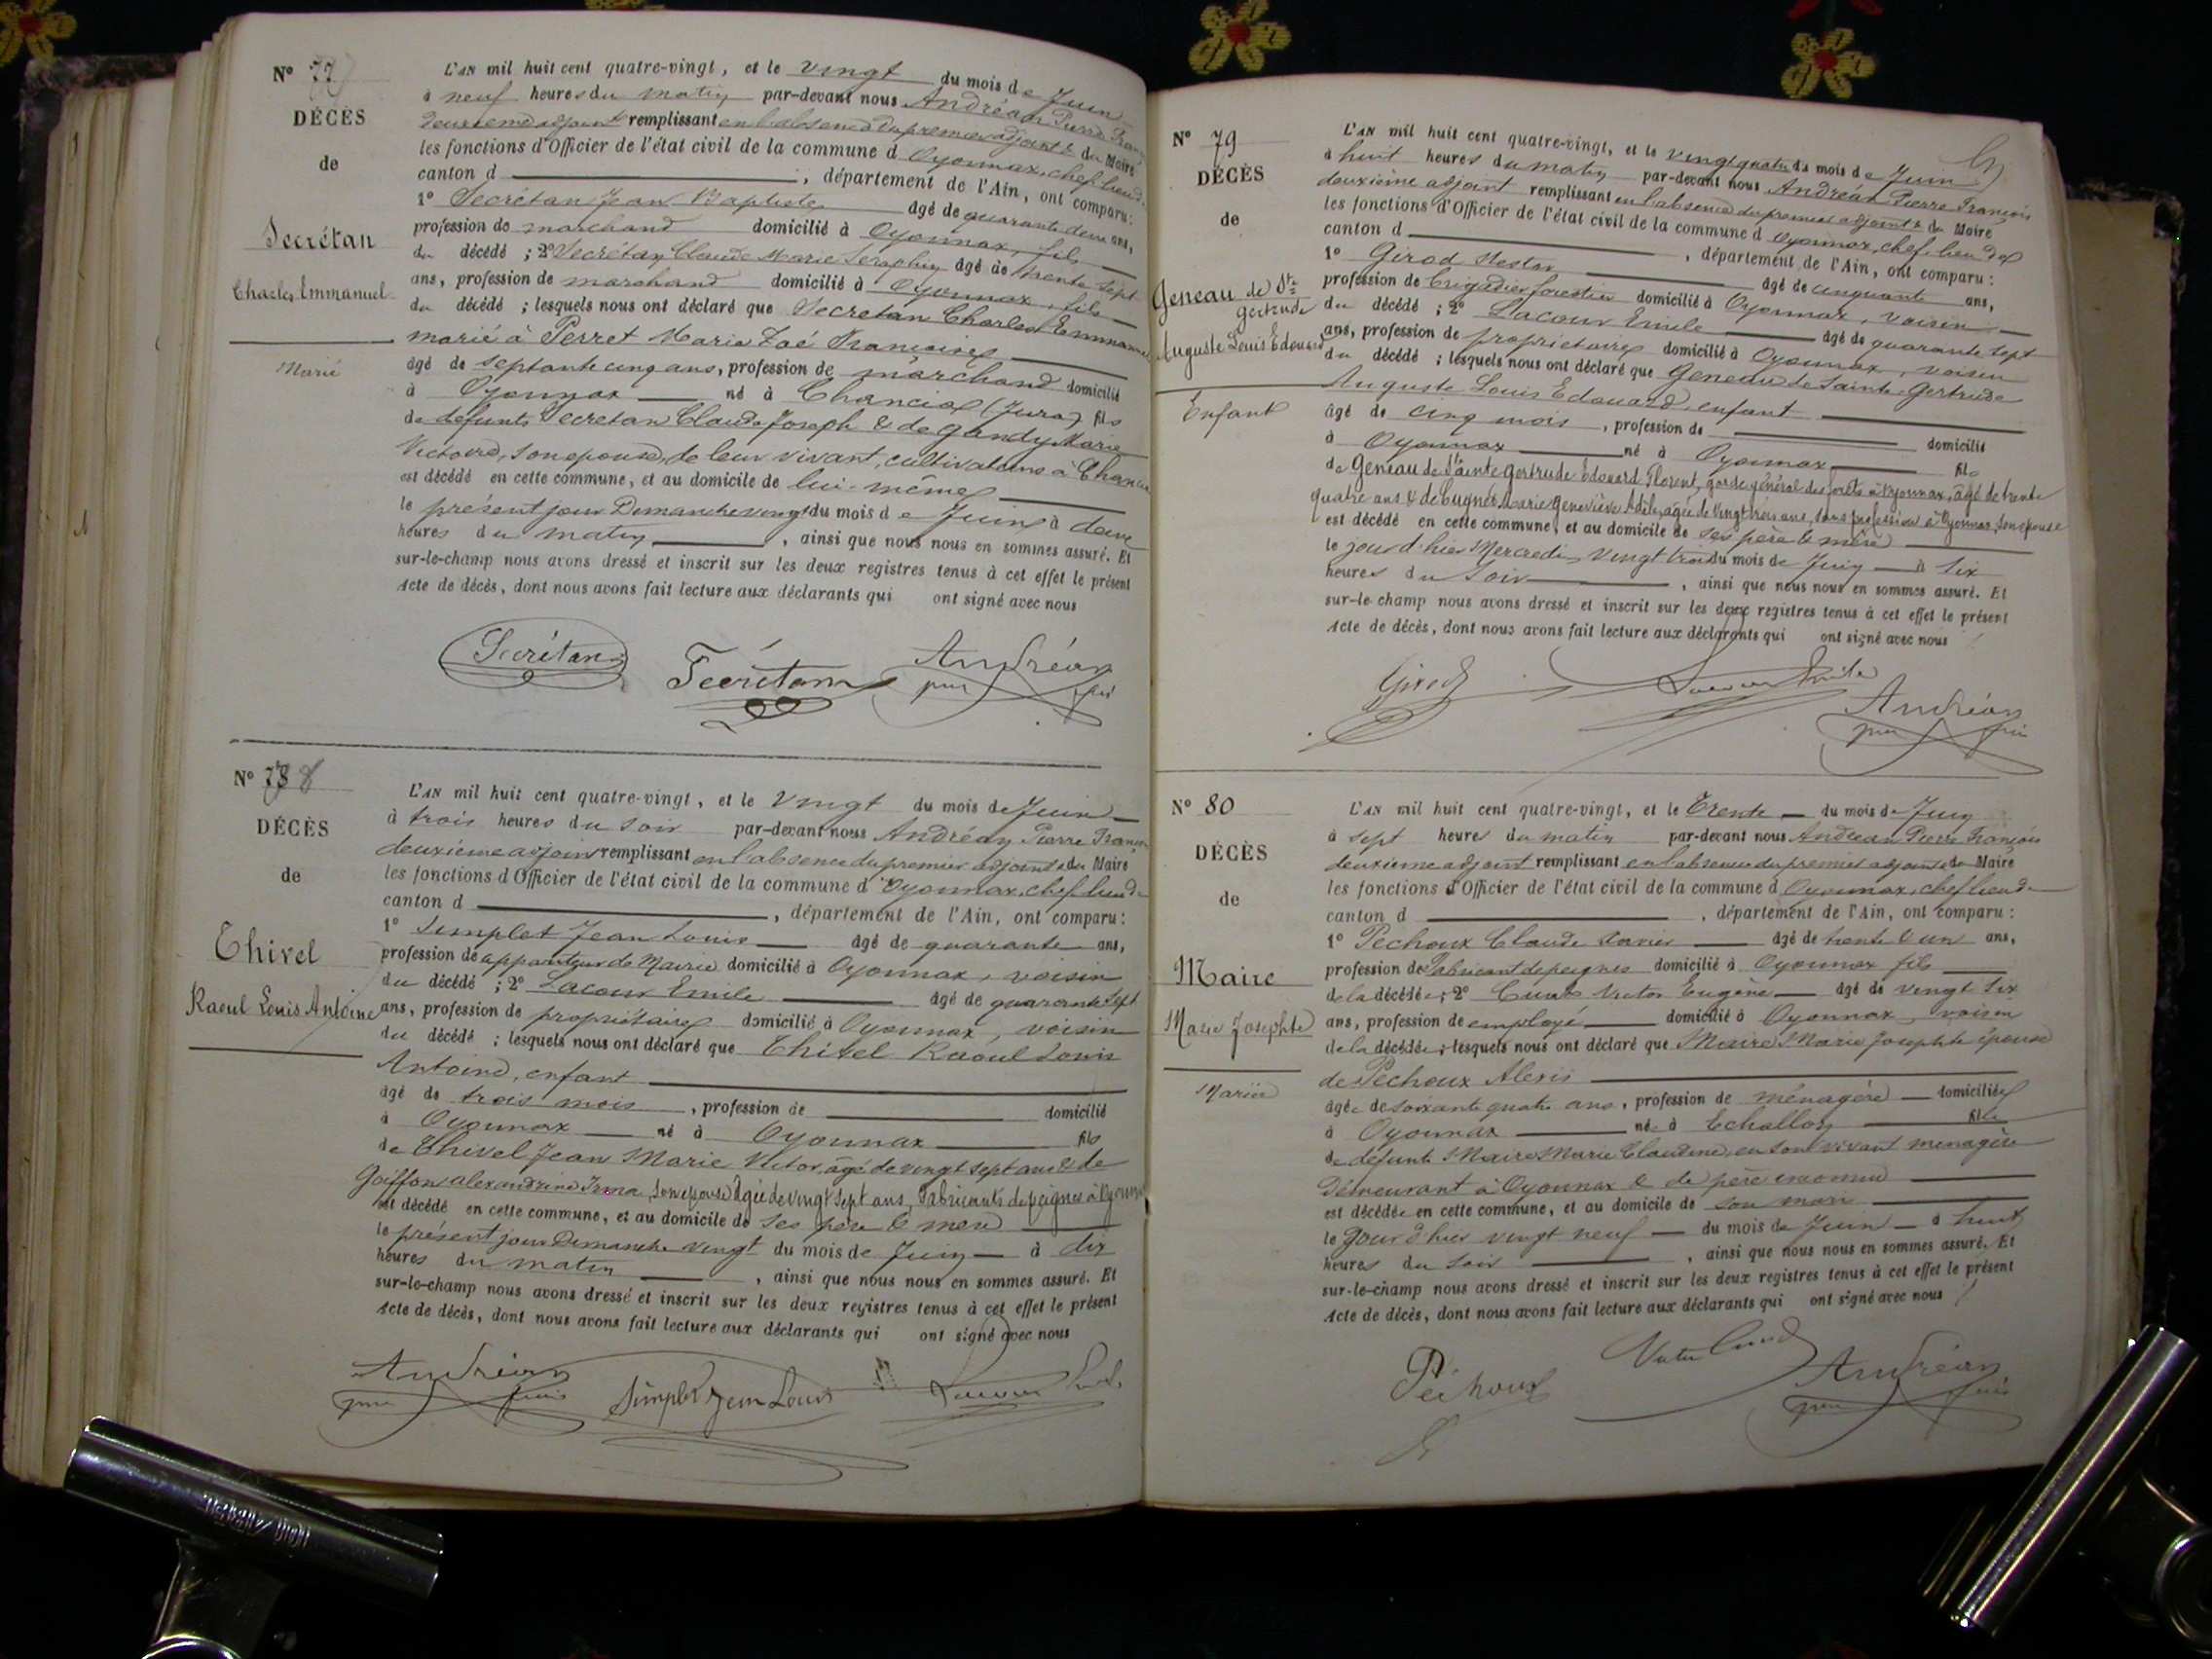 N° 77
DÉCÈS
de
Secrétan
Charles Emmanuel
Marié
L'AN mil huit cent quatre-vingt, et le vingt du mois de Juin
à neuf heures du matin par-devant nous Andréan Pierre
deuxième adjoint remplissant en l'absence du premier adjoint & du Maire
les fonctions d'Officier de l'état civil de la commune d Oyonnax, chef lieu de
canton d , département de l'Ain, ont comparu :
1° Secrétan Jean Baptiste âgé de quarante deux ans,
profession de marchand domicilié à Oyonnax, fils
du décédé ; 2° Secrétan Claude Marie Séraphin âgé de trente sept
ans, profession de marchand domicilié à Oyonnax, fils
du décédé ; lesquels nous ont déclaré que Secretan Charles Emmanuel
marié à Perret Marie Zoé Françoise
âgé de septante cinq ans, profession de marchand domicilié
à Oyonnax né à Chancia (Jura) fils
de defunts Secretan Claude Joseph & de Gandy Marie
Victoire, son epouse, de leur vivant, cultivateurs à Chancia
est décédé en cette commune, et au domicile de lui-même
le présent jour Dimanche vingt du mois de Juin à deux
heures du matin , ainsi que nous nous en sommes assuré. Et
sur-le-champ nous avons dressé et inscrit sur les deux registres tenus à cet effet le présent
Acte de décès, dont nous avons fait lecture aux déclarants qui ont signé avec nous
Secrétan Secrétan Andréan
N° 78
DÉCÈS
de
Thivel
Raoul Louis Antoine
L'AN mil huit cent quatre-vingt, et le vingt du mois de Juin
à trois heures du soir par-devant nous Andréan Pierre François
deuxième adjoint remplissant en l'absence du premier adjoint & du Maire
les fonctions d'Officier de l'état civil de la commune d Oyonnax, chef lieu de
canton d , département de l'Ain, ont comparu :
1° Simplet Jean Louis âgé de quarante ans,
profession de appariteur de Mairie domicilié à Oyonnax, voisin
du décédé ; 2° Lacour Emile âgé de quarante sept
ans, profession de propriétaire domicilié à Oyonnax, voisin
du décédé ; lesquels nous ont déclaré que Thivel Raoul Louis
Antoine, enfant
âgé de trois mois , profession de domicilié
à Oyonnax né à Oyonnax fils
de Thivel Jean Marie Victor, âgé de vingt sept ans & de
Goiffon Alexandrine Irma, son epouse, âgée de vingt sept ans, fabricants de peignes à Oyonnax
est décédé en cette commune, et au domicile de ses père & mère
le présent jour Dimanche vingt du mois de Juin à dix
heures du matin , ainsi que nous nous en sommes assuré. Et
sur-le-champ nous avons dressé et inscrit sur les deux registres tenus à cet effet le présent
Acte de décès, dont nous avons fait lecture aux déclarants qui ont signé avec nous
Andréan Simplet Jean Louis
N° 79
DÉCÈS
de
Geneau de Ste
Gertrude
Auguste Louis Edouard
Enfant
L'AN mil huit cent quatre-vingt, et le vingt quatre du mois de Juin
à huit heures du matin par-devant nous Andréan Pierre François
deuxième adjoint remplissant en l'absence du premier adjoint & du Maire
les fonctions d'Officier de l'état civil de la commune d Oyonnax, chef lieu de
canton d , département de l'Ain, ont comparu :
1° Girod Nestor âgé de cinquante ans,
profession de brigadier forestier domicilié à Oyonnax, voisin
du décédé ; 2° Lacour Emile âgé de quarante sept
ans, profession de propriétaire domicilié à Oyonnax, voisin
du décédé ; lesquels nous ont déclaré que Geneau de Sainte-Gertrude
Auguste Louis Edouard, enfant
âgé de cinq mois , profession de domicilié
à Oyonnax né à Oyonnax fils
de Geneau de Sainte Gertrude Edouard Florent, garde général des forêts à Oyonnax, âgé de trente
quatre ans & de Cugnet Marie Geneviève Adèle, agée de vingt trois ans, sans profession à Oyonnax, son epouse
est décédé en cette commune, et au domicile de ses père & mère
le jour d'hier Mercredi vingt trois du mois de Juin à six
heures du soir , ainsi que nous nous en sommes assuré. Et
sur-le-champ nous avons dressé et inscrit sur les deux registres tenus à cet effet le présent
Acte de décès, dont nous avons fait lecture aux déclarants qui ont signé avec nous
Girod Lacour Emile
Andréan
N° 80
DÉCÈS
de
Maire
Marie Josephte
Mariée
L'AN mil huit cent quatre-vingt, et le Trente du mois de Juin
à sept heures du matin par-devant nous Andréan Pierre François
deuxième adjoint remplissant en l'absence du premier adjoint & du Maire
les fonctions d'Officier de l'état civil de la commune d Oyonnax, chef lieu de
canton d , département de l'Ain, ont comparu :
1° Pechoux Claude Xavier âgé de trente & un ans,
profession de Fabricant de peignes domicilié à Oyonnax fils
de la décédée ; 2° Victor Eugène âgé de vingt six
ans, profession de employé domicilié à Oyonnax voisin
de la décédée ; lesquels nous ont déclaré que Maire Marie Josephte épouse
de Pechoux Alexis
âgée de soixante quatre ans, profession de ménagère domiciliée
à Oyonnax née à Echallon fille
de defunte Maire Marie Claudine, en son vivant ménagère
demeurant à Oyonnax & de père inconnu
est décédée en cette commune, et au domicile de son mari
le jour d'hier vingt neuf du mois de Juin à huit
heures du soir , ainsi que nous nous en sommes assuré. Et
sur-le-champ nous avons dressé et inscrit sur les deux registres tenus à cet effet le présent
Acte de décès, dont nous avons fait lecture aux déclarants qui ont signé avec nous
Péchoux Andréan